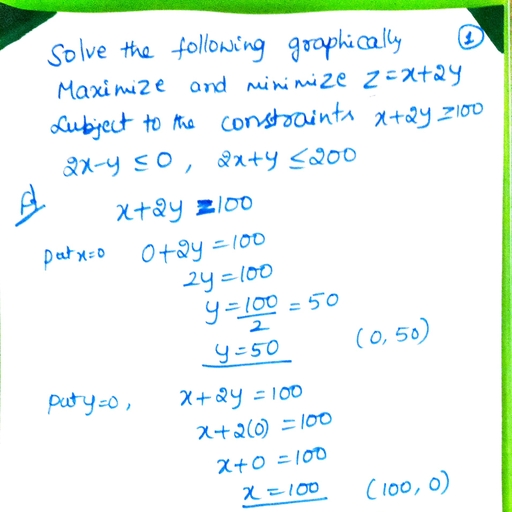 Solve the following graphically ①
Maximize and minimize Z=x+2y
Subject to the constraints x+2y≥100
2x-y≤0, 2x+y≤200
x+2y=100
put x=0 0+2y=100
2y=100
y=100/2=50
y=50 (0,50)
put y=0, x+2y=100
x+2(0)=100
x+0=100
x=100 (100,0)